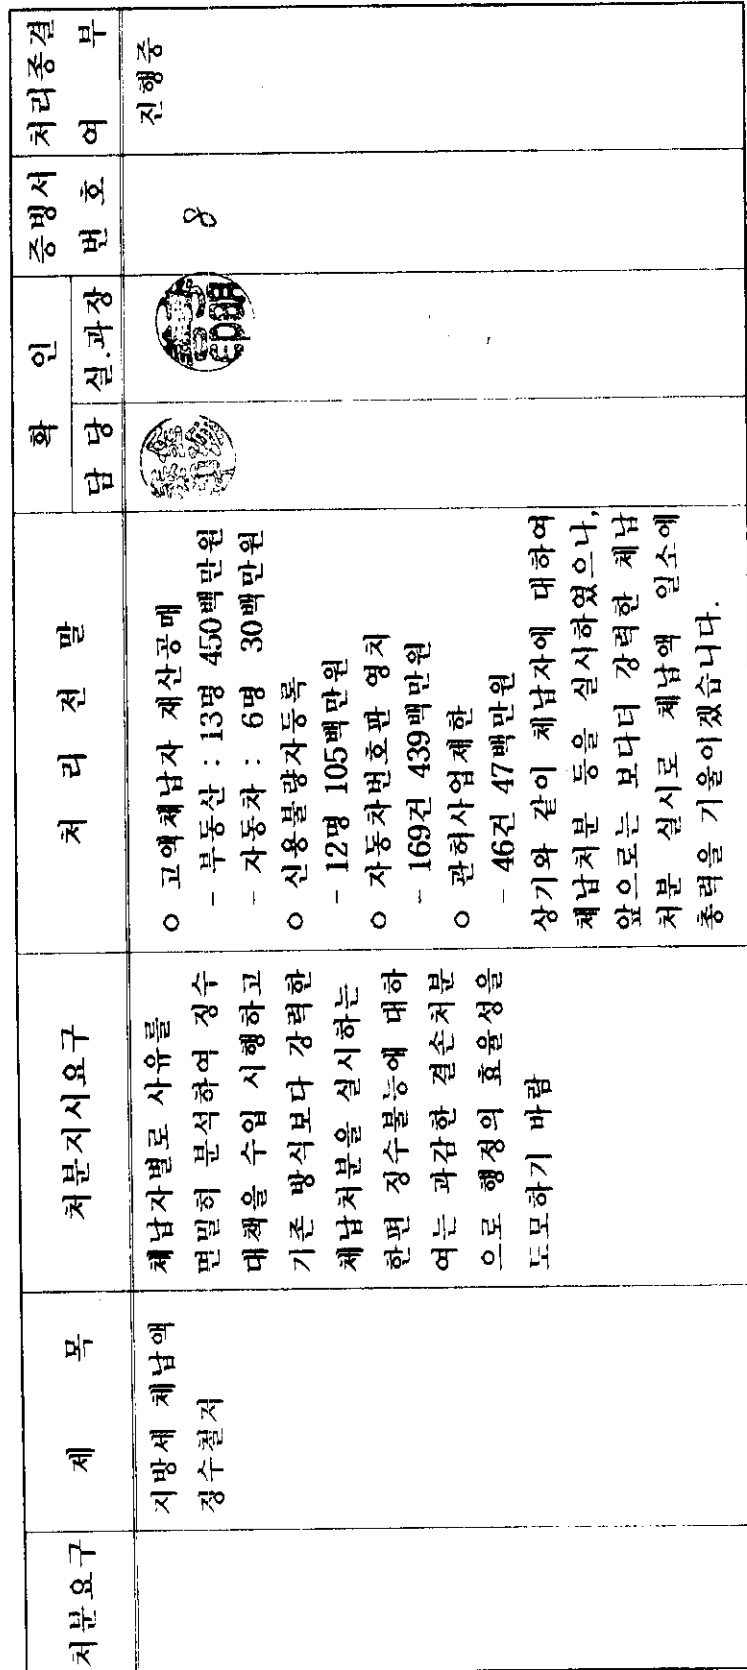 처분요구
제 목
처분지시요구
처 리 전 말
확 인
담 당
실.과장
증빙서
번 호
처리종결
여 부
지방세 체납액
징수철저
체납자별로 사유를
면밀히 분석하여 징수
대책을 수입 시행하고
기존 방식보다 강력한
체납처분을 실시하는
한편 징수불능에 대하
여는 과감한 결손처분
으로 행정의 효율성을
도모하기 바람
o 고액체납자 재산공매
- 부동산 : 13명 450백만원
- 자동차 : 6명 30백만원
o 신용불량자등록
- 12명 105백만원
o 자동차번호판 영치
- 169건 439백만원
o 관허사업제한
- 46건 47백만원
상기와 같이 체납자에 대하여
체납처분 등을 실시하였으나,
앞으로는 보다더 강력한 체납
처분 실시로 체납액 일소에
총력을 기울이겠습니다.
8
진행중